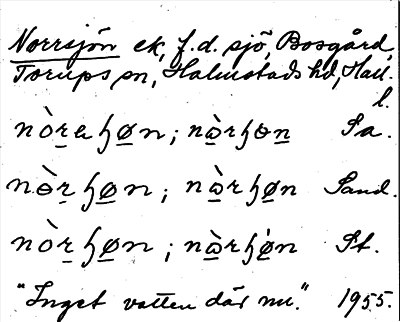 Norrsjön ek, f.d. sjö, Bosgård,
Torups sn, Halmstads hd, Hall.
l.
nòrahøn; nòrhøn Sa.
nòrhøn; nàrhøn Sand.
nòrhøn; nàrhøn St.
"Inget vatten där nu." 1955.